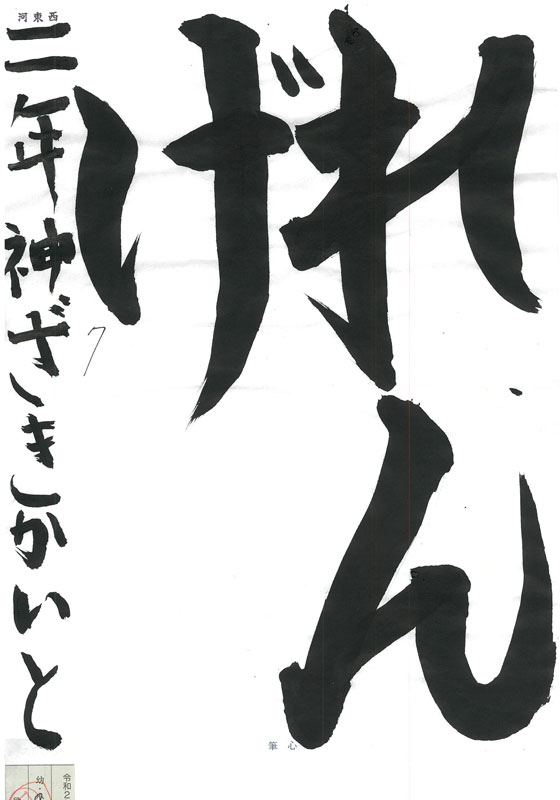 れん
げ
二年神ざきかいと
河東西
7
筆心
令和2
幼